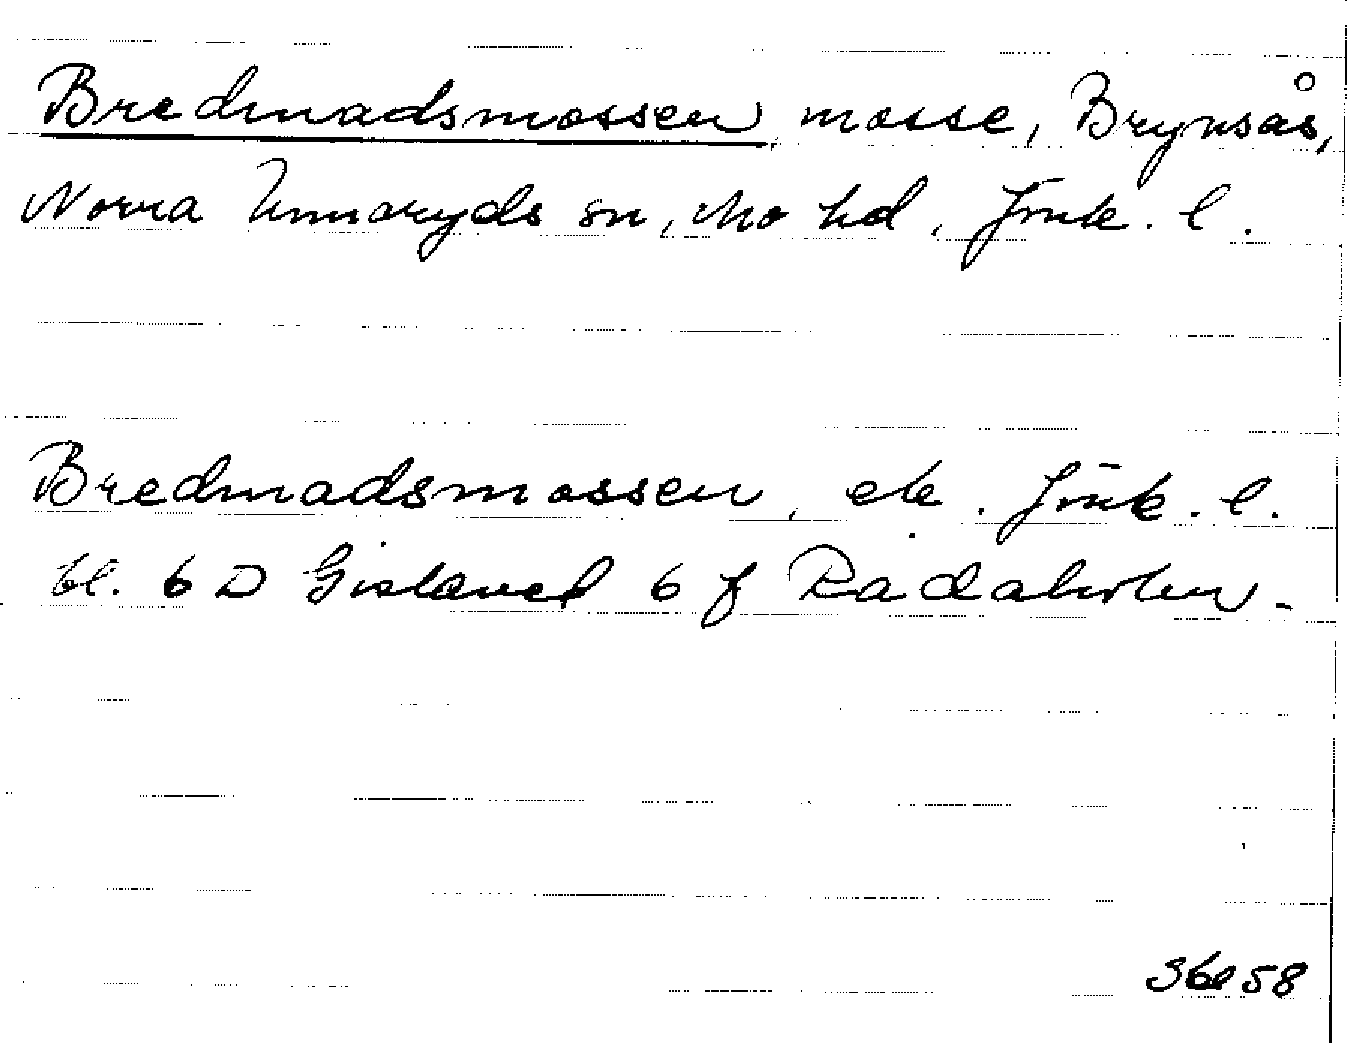 Bredmadsmossen, mosse, Brynsås,
Norra Unnaryds sn, Mo hd, Jönk. l.
Bredmadsmossen, ek. Jönk. l.
bl. 6 D Gislaved 6 f Radaholm.
Sbl 58